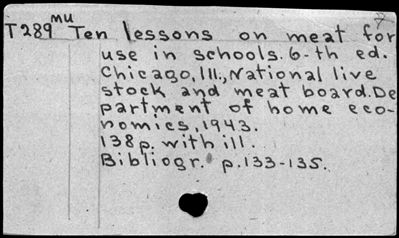 7
mu
T289 Ten lessons on meat for
use in schools. 6-th ed.
Chicago, Ill., National live
stock and meat board. De
partment of home eco-
nomics, 1943.
138 p. with ill.
Bibliogr. p. 133-135.